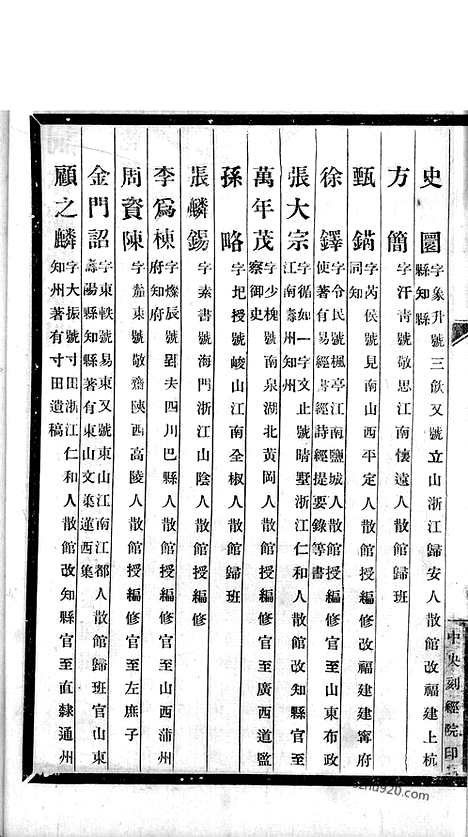 史圖字象升號三飮又號立山浙江歸安人散館改福建上杭
縣知縣
方簡字汗青號敬思江南懷遠人散館歸班
甄錫字芮侯號見南山西平定人散館授編修改福建建寧府
同知
徐鐸字令民號楓亭江南鹽城人散館授編修官至山東布政
使著有易經書經詩經提要錄等書
張大宗字循如一字文止號晴墅浙江仁和人散館改知縣官至
江南壽州知州
萬年茂字少槐號南泉湖北黃岡人散館授編修官至廣西道監
察御史
孫略字圯授號峻山江南全椒人散館歸班
張麟錫字素書號海門浙江山陰人散館授編修
李爲棟字燦辰號羽夫四川巴縣人散館授編修官至山西蒲州
府知府
周資陳字嘉東號敬齋陝西高陵人散館授編修官至左庶子
金門詔字東軼號易東又號東山江南江都人散館歸班官山東
壽陽縣知縣著有東山文集蓮西集
顧之麟字大振號寸田浙江仁和人散館改知縣官至直隸通州
知州著有寸田遺稿
中央刻經院印